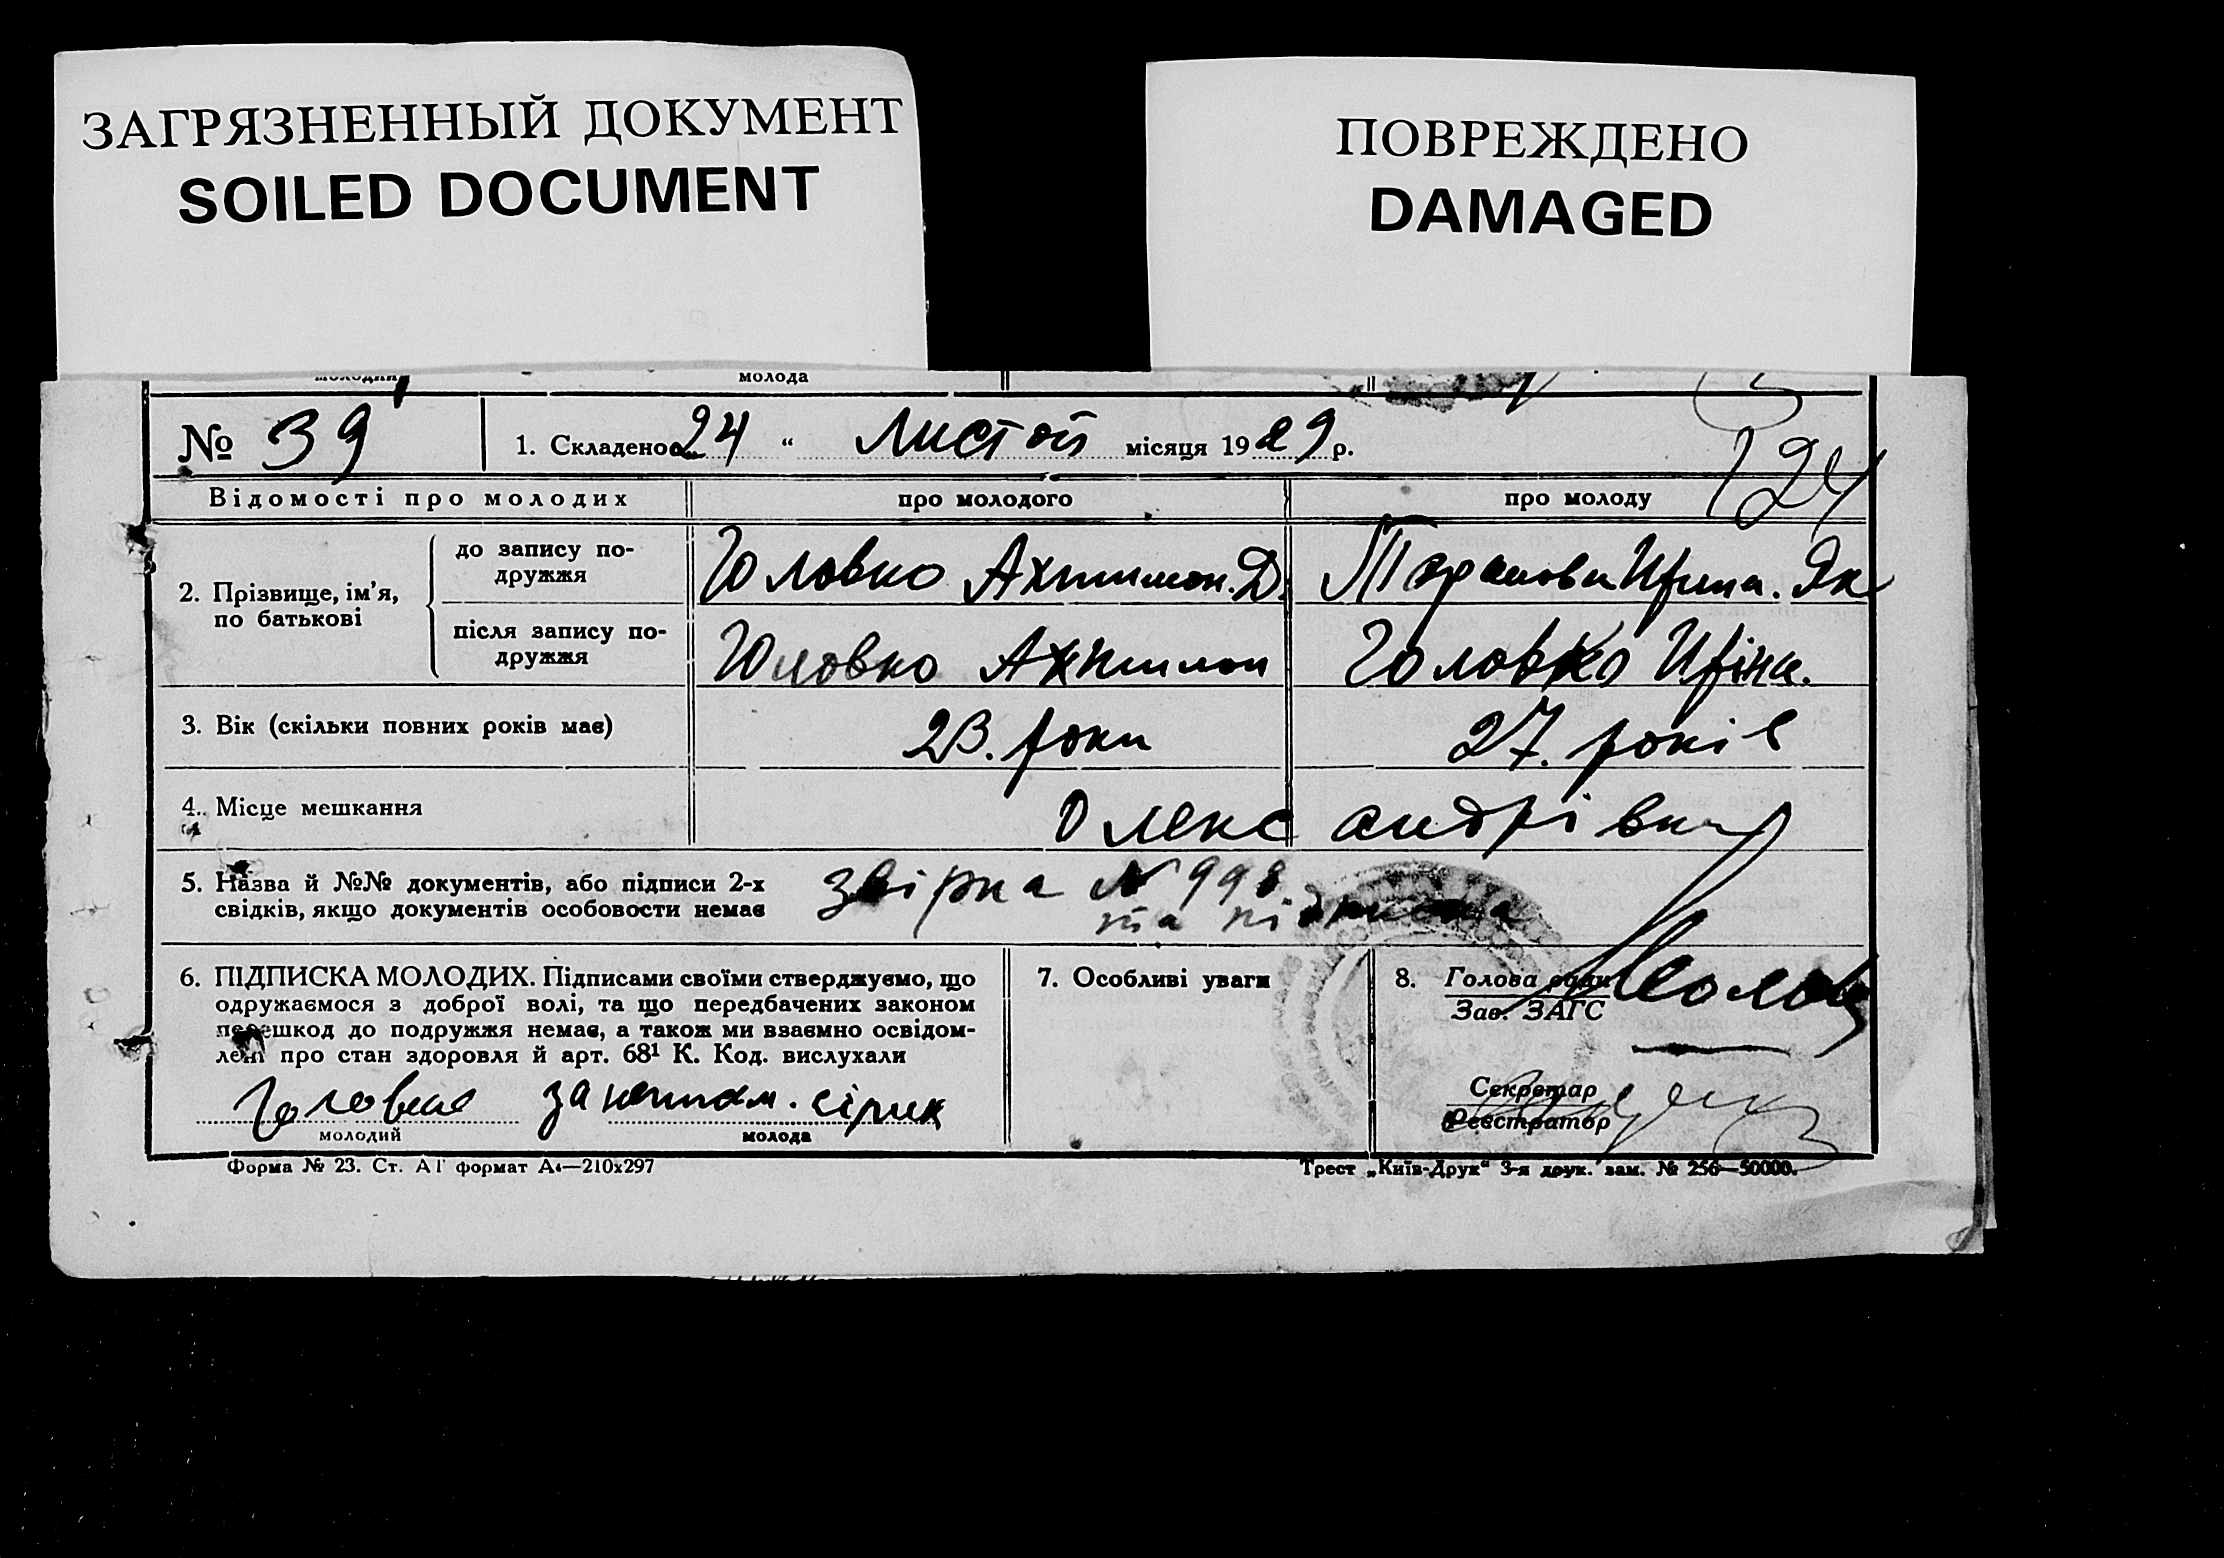 ЗАГРЯЗНЕННЫЙ ДОКУМЕНТ
SOILED DOCUMENT
ПОВРЕЖДЕНО
DAMAGED
молодий молода
№ 39 1. Складено 24 “ Листоп місяця 1929 р.
124
Відомості про молодих про молодого про молоду
2. Прізвище, ім’я, по батькові
до запису по-
дружжя
Головко Д. Ирина. Як
після запису по-
дружжя
Головко Головко Иріна.
3. Вік (скільки повних років має) 23. роки 27. років
4. Місце мешкання Олександрівка
5. Назва й №№ документів, або підписи 2-х звірка № 998
свідків, якщо документів особовости немає та підписка
6. ПІДПИСКА МОЛОДИХ. Підписами своїми стверджуємо, що
одружаємося з доброї волі, та що передбачених законом
перешкод до подружжя немає, а також ми взаємно освідом-
лені про стан здоровля й арт. 68¹ К. Код. вислухали
Головко
молодий молода
7. Особливі уваги
8. Голова ради
Зав. ЗАГС
Секретар
Реєстратор
Форма № 23. Ст. АГ формат А4—210х297
Трест „Київ-Друк“ 3-я друк. зам. № 256—50000.